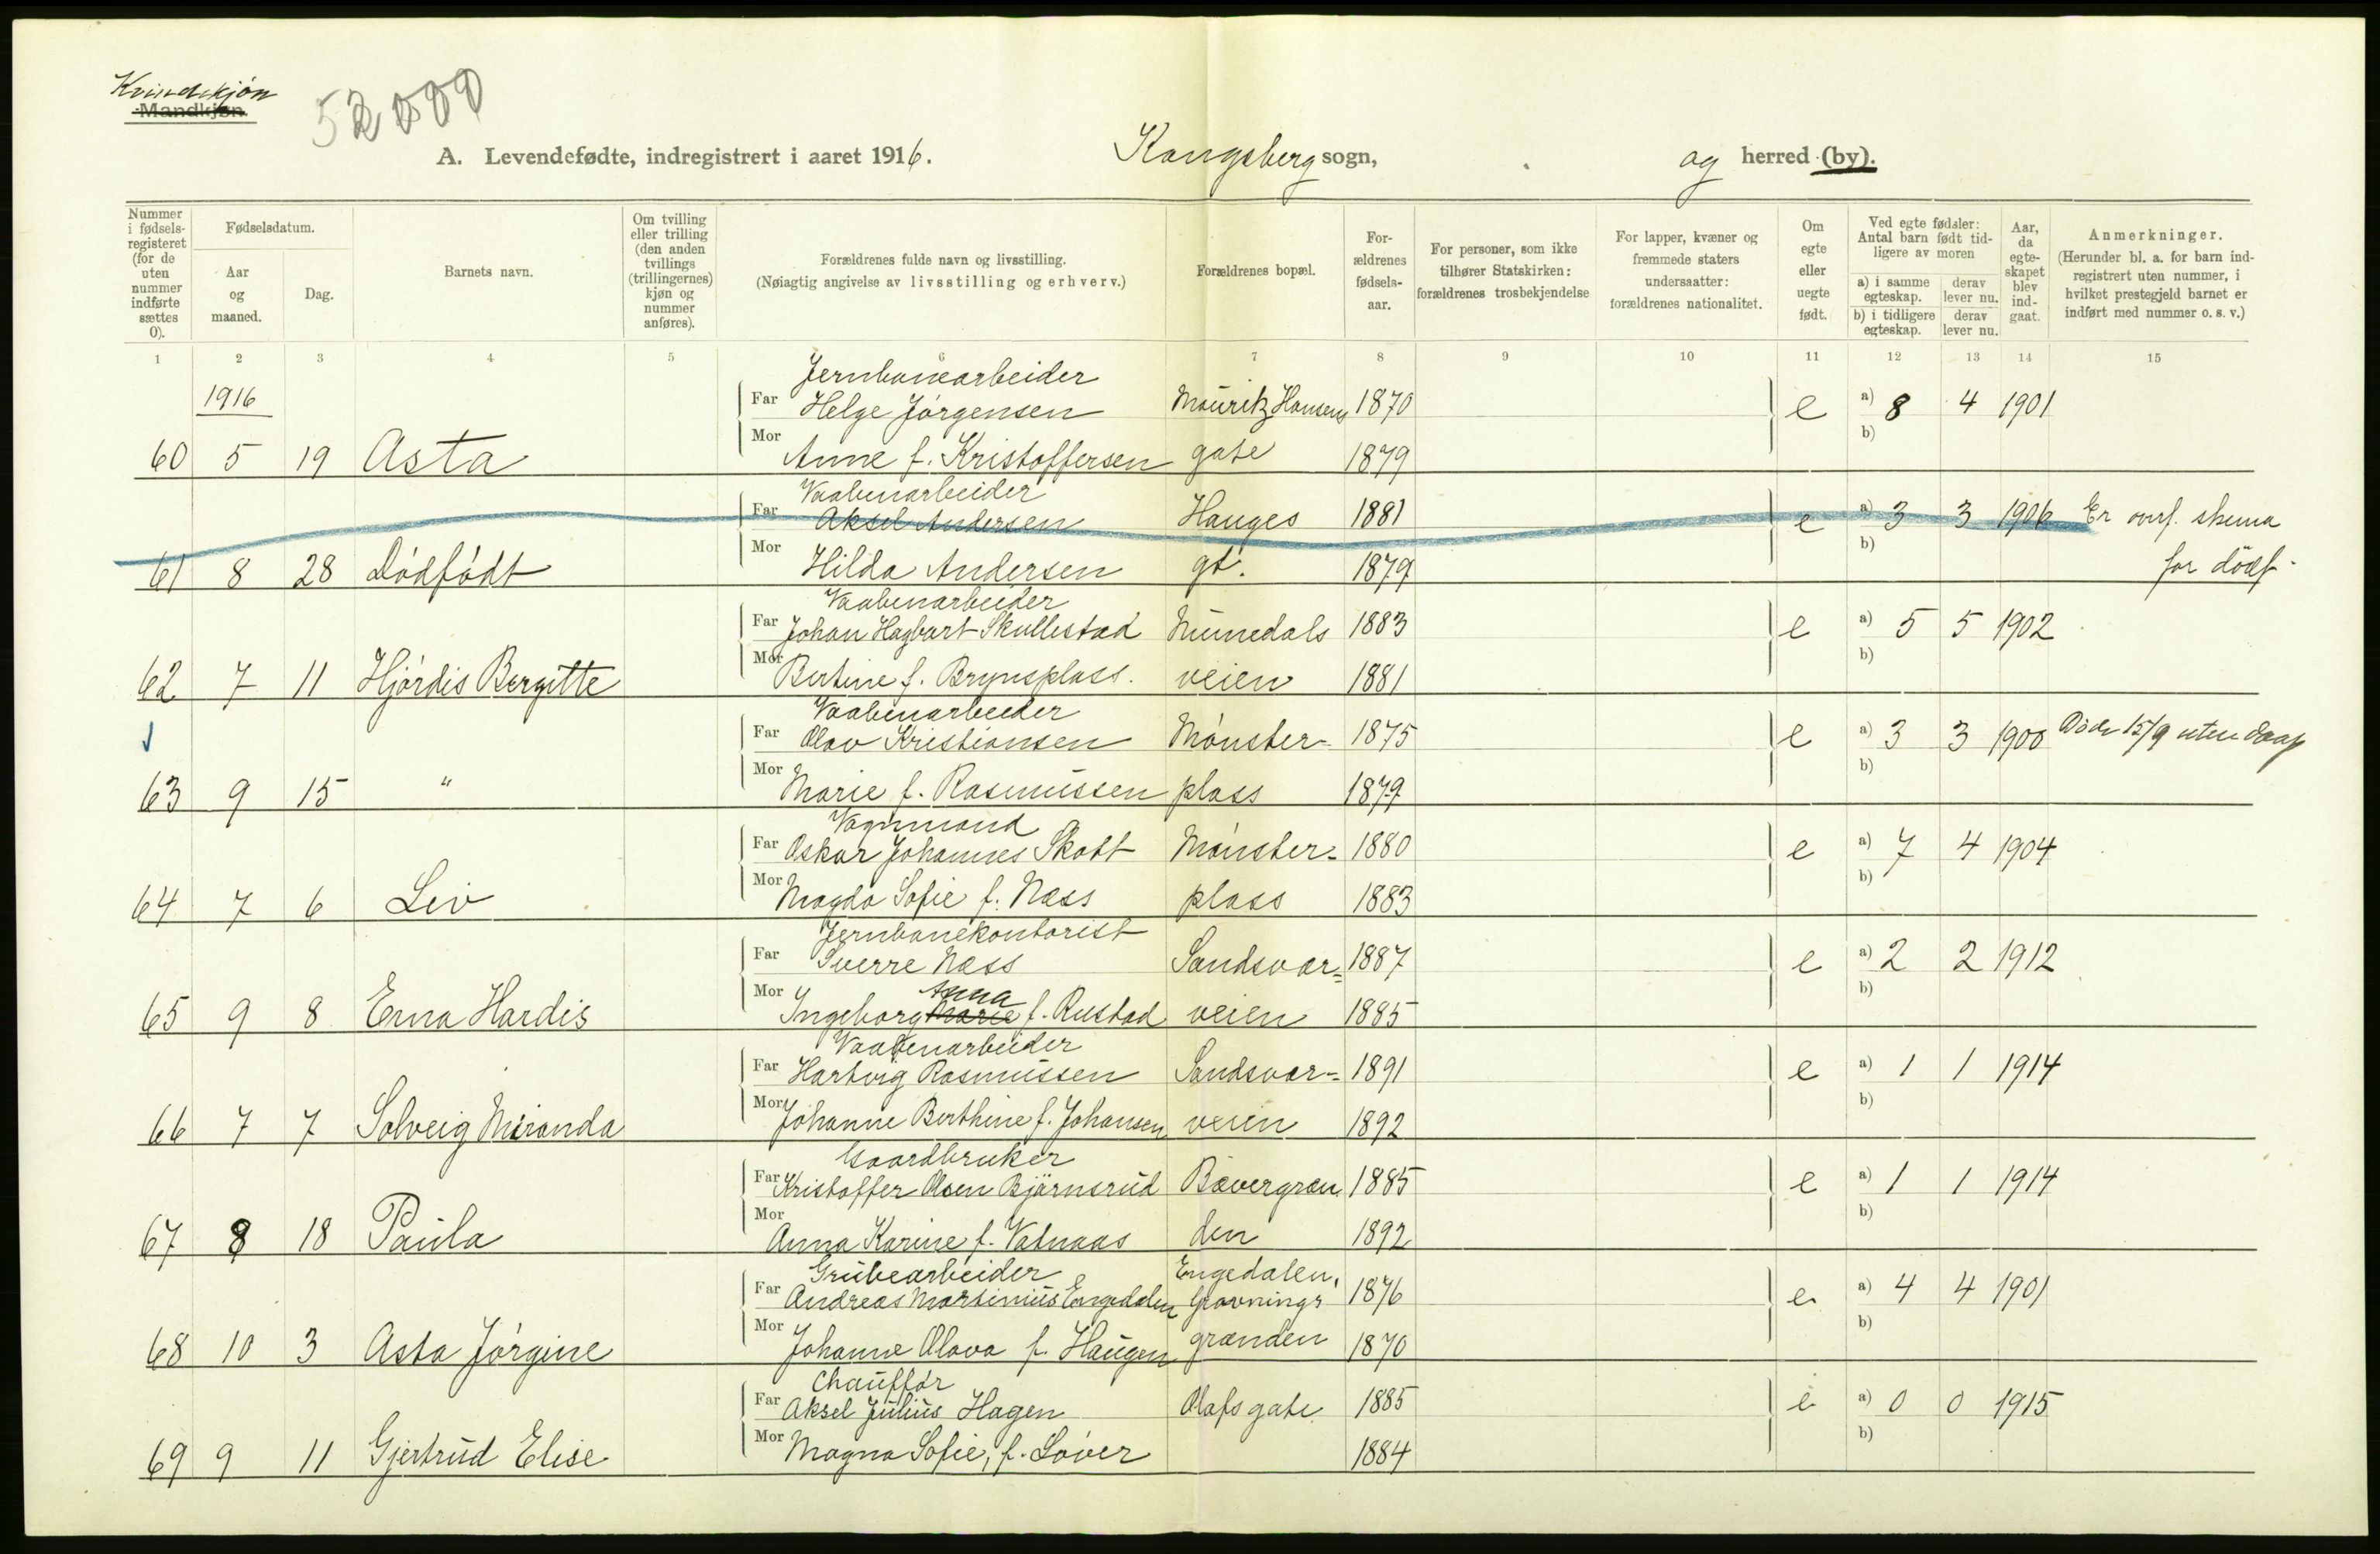 Kvindekjøn
Mandkjøn.
52000
A. Levendefødte, indregistrert i aaret 1916. Kongsberg sogn, og herred (by).
Nummer i fødselsregisteret (for de uten nummer indførte sættes 0).
Fødselsdatum.
Aar og maaned.
Dag.
Barnets navn.
Om tvilling eller trilling (den anden tvillings (trillingernes) kjøn og nummer anføres).
Forældrenes fulde navn og livsstilling.
(Nøiagtig angivelse av livsstilling og erhverv.)
Forældrenes bopæl.
Forældrenes fødselsaar.
For personer, som ikke tilhører Statskirken: forældrenes trosbekjendelse
For lapper, kvæner og fremmede staters undersaatter: forældrenes nationalitet.
Om egte eller uegte født.
Ved egte fødsler: Antal barn født tidligere av moren
a) i samme egteskap.
derav lever nu.
b) i tidligere egteskap.
derav lever nu.
Aar, da egteskapet blev indgaat.
Anmerkninger.
(Herunder bl. a. for barn indregistrert uten nummer, i hvilket prestegjeld barnet er indført med nummer o. s. v.)
1 2 3 4 5 6 7 8 9 10 11 12 13 14 15
Jernbanearbeider
1916 Far Helge Jørgensen Mauritz Hansens 1870 e a) 8 4 1901
b)
60 5 19 Asta Mor Anne f. Kristoffersen gate 1879
Vaabenarbeider
Far Aksel Andersen Hauges 1881 e a) 3 3 1906 Er overf. skema
b)
61 8 28 Dødfødt Mor Hilda Andersen gt. 1879 for dødf.
Vaabenarbeider
Far Johan Hagbart Skullestad Numedals 1883 e a) 5 5 1902
b)
62 7 11 Hjørdis Bergitte Mor Bertine f. Brynsplass. veien 1881
Vaabenarbeider
Far Olav Kristiansen Mønster- 1875 e a) 3 3 1900 Døde 15/9 uten daap
b)
63 9 15 " Mor Marie f. Rasmussen plass 1879
Vognmand
Far Oskar Johannes Skott Mønster- 1880 e a) 7 4 1904
b)
64 7 6 Liv Mor Magda Sofie f. Næss plass 1883
Jernbanekontorist
Far Sverre Næss Sandsvær- 1887 e a) 2 2 1912
b)
Anna
65 9 8 Erna Hardis Mor Ingeborg Marie f. Rustad veien 1885
Vaabenarbeider
Far Hartvig Rasmussen Sandsvær- 1891 e a) 1 1 1914
b)
66 7 7 Solveig Miranda Mor Johanne Berthine f. Johansen veien 1892
Gaardbruker
Far Kristoffer Olsen Bjørnsrud Bævergræn 1885 e a) 1 1 1914
b)
67 8 18 Paula Mor Anna Karine f. Vatnaas den 1892
Grubearbeider Engedalen,
Far Andreas Martinius Engedalen Gravnings 1876 e a) 4 4 1901
b)
68 10 3 Asta Jørgine Mor Johanne Olava f. Haugen grænden 1870
Chauffør
Far Aksel Julius Hagen Olafs gate 1885 e a) 0 0 1915
b)
69 9 11 Gjertrud Elise Mor Magna Sofie, f. Løver 1884